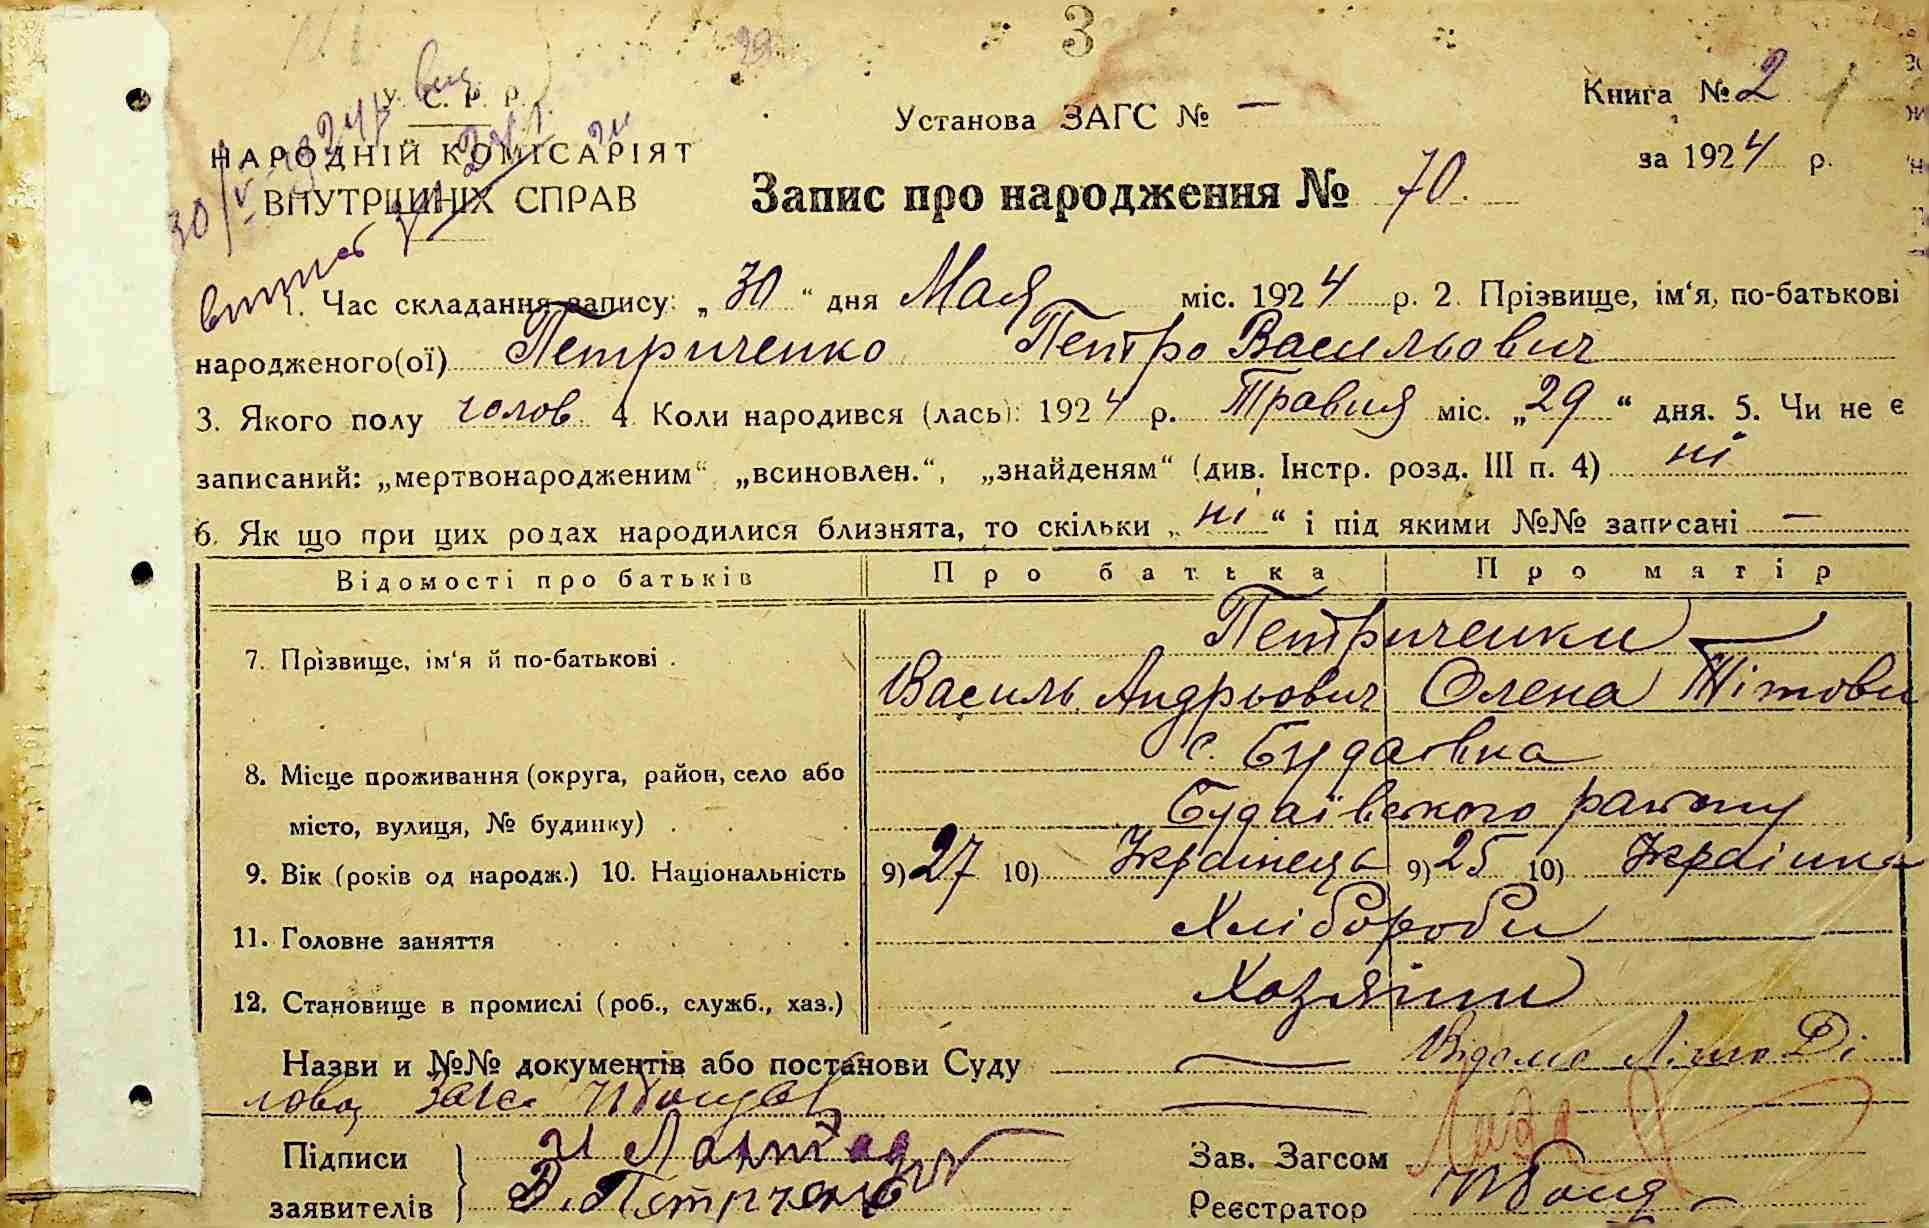 3
У. С. Р. Р.
НАРОДНІЙ КОМІСАРІЯТ
ВНУТРІШНІХ СПРАВ
Установа ЗАГС № —
Книга № 2
за 1924 р.
Запис про народження № 70.
1. Час складання запису: „30“ дня Мая міс. 1924 р. 2. Прізвище, ім‘я, по-батькові
народженого(ої) Петриченко Петро Васильович
3. Якого полу чолов. 4. Коли народився (лась): 1924 р. Травня міс. „29“ дня. 5. Чи не є
записаний: „мертвонародженим“ „всиновлен.“, „знайденям“ (див. Інстр. розд. III п. 4) ні
6. Як що при цих родах народилися близнята, то скільки „ні“ і під якими №№ записані —
Відомості про батьків Про батька Про матір
7. Прізвище, ім‘я й по-батькові . Петриченки
Василь Андрьович Олена Тітовн
8. Місце проживання (округа, район, село або
місто, вулиця, № будинку) . .
с. Будаівка
Будаівського району
9. Вік (років од народж.) 10. Національність 9) 27 10) Украінець 9) 25 10) Украінка
11. Головне заняття Хлібороби
12. Становище в промислі (роб., служб., хаз.) Хозяіни
Назви и №№ документів або постанови Суду — Відомо
—
Підписи
заявителів
В. Петрченко
Зав. Загсом
Реєстратор